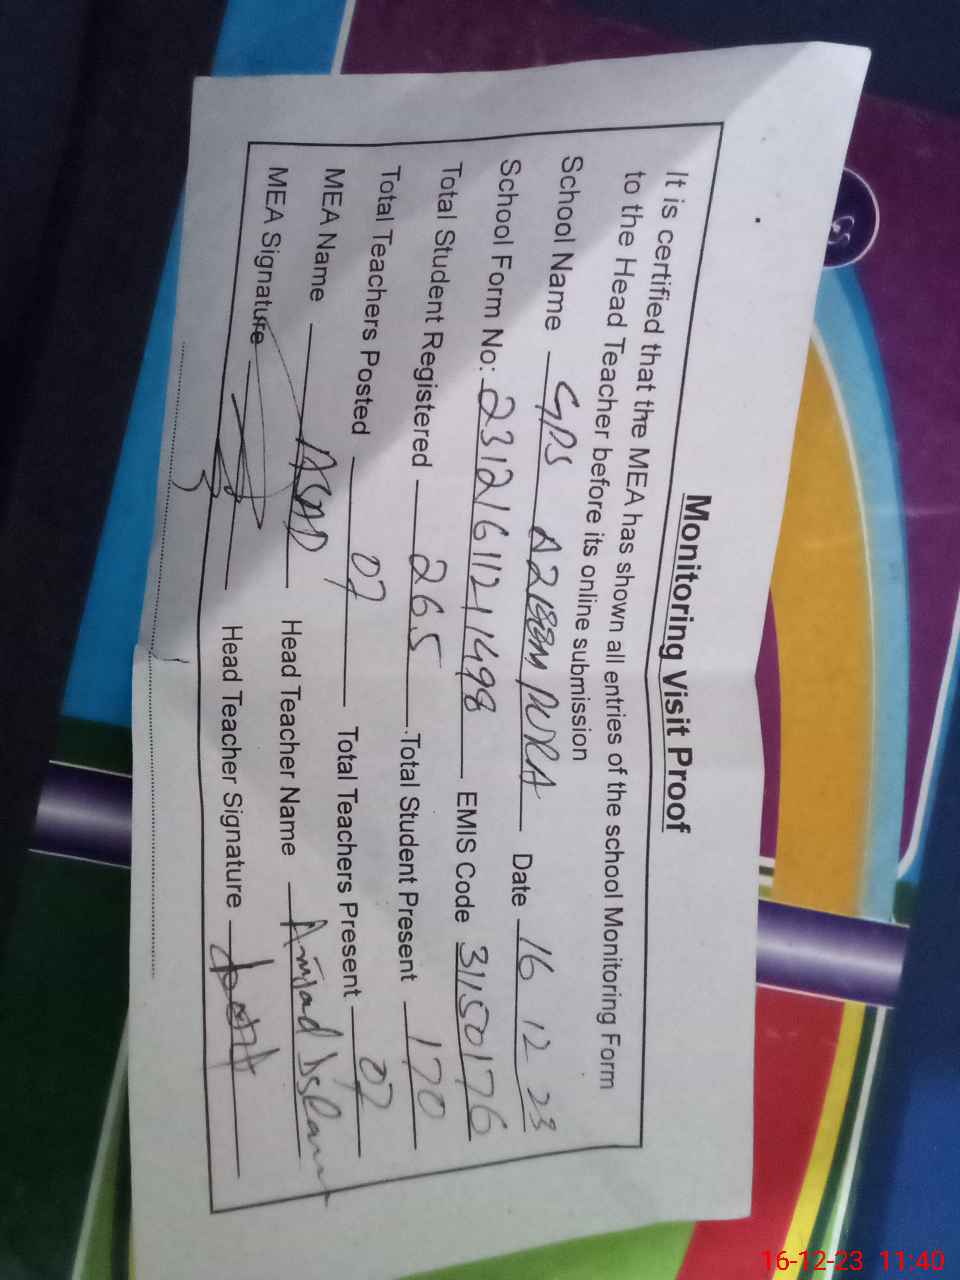 Monitoring Visit Proof
It is certified that the MEA has shown all entries of the school Monitoring Form
to the Head Teacher before its online submission
School Name GPS AZEEM PURA Date 16 12 23
School Form No: 23121611211498 EMIS Code 31150176
Total Student Registered 265 Total Student Present 170
Total Teachers Posted 07 Total Teachers Present 07
MEA Name ASAD Head Teacher Name Amjad Islam
MEA Signature Head Teacher Signature
16-12-23 11:40